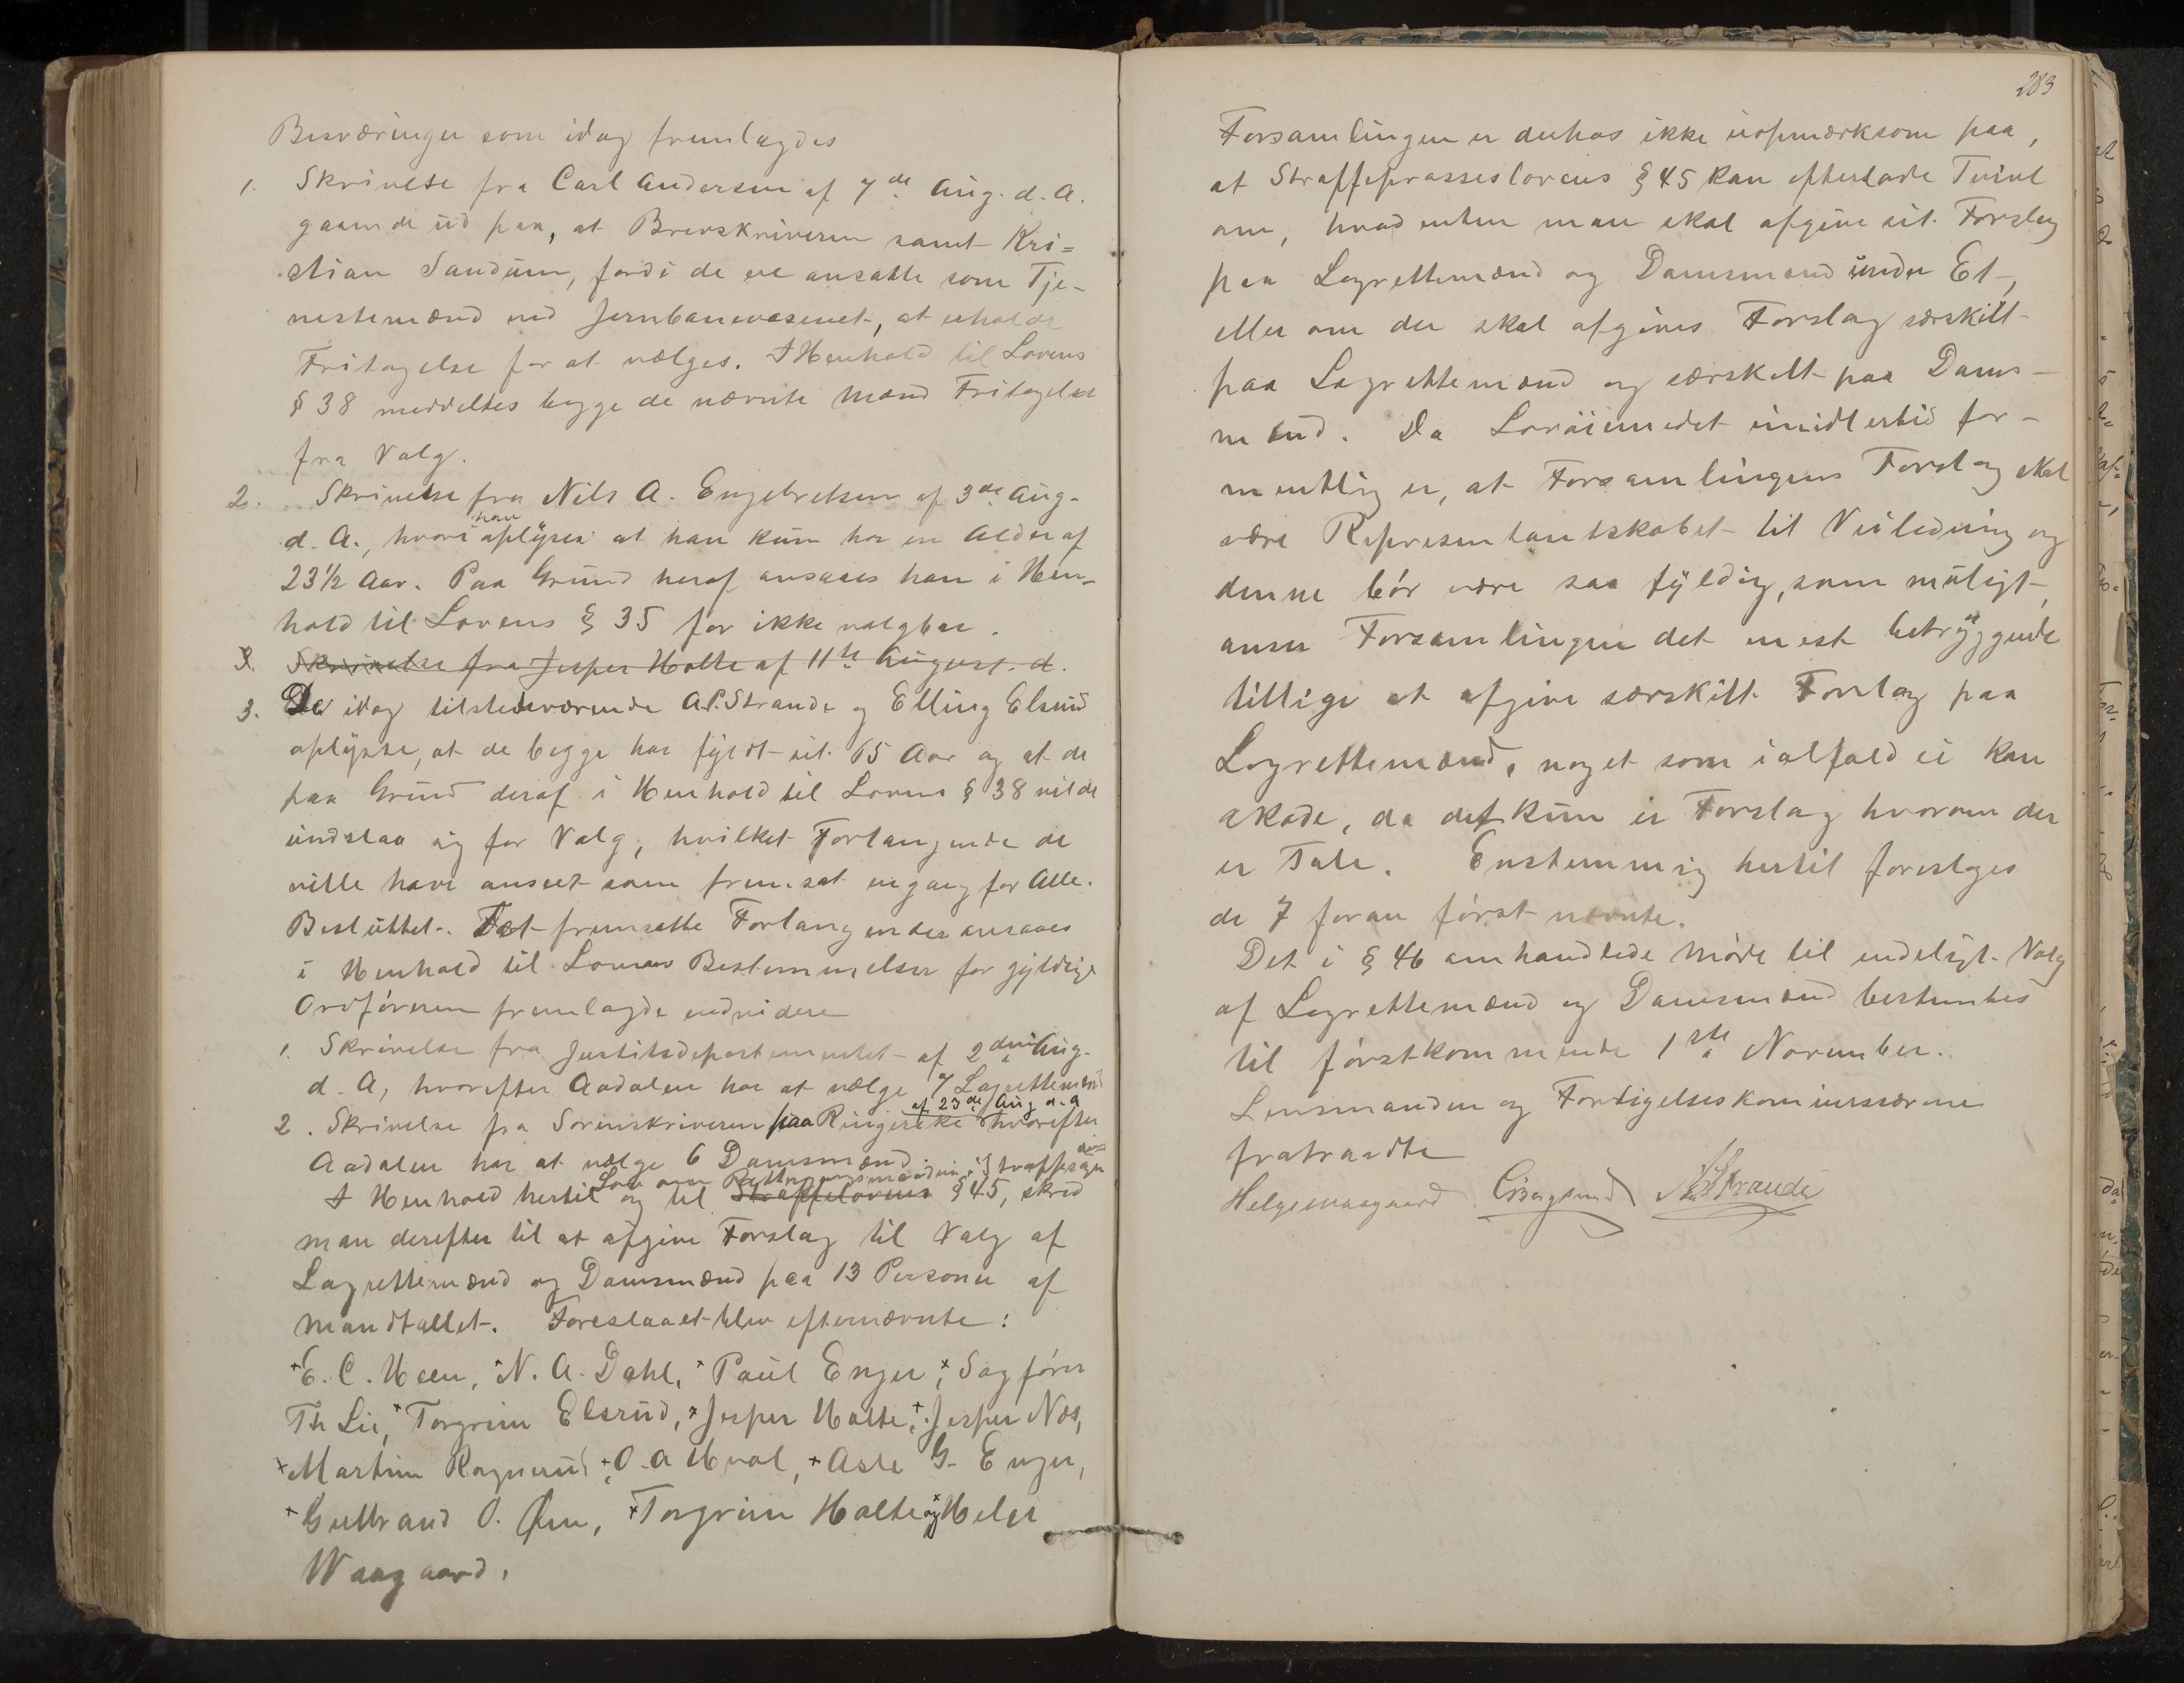 Besværinger som idag fremlagdes
1. Skrivelse fra Carl Andersen af 7de Aug. d. A.
gaaende ud paa, at Brevskriveren samt Kri=
stian Sandum, fordi de ere ansatte som Tje-
nestemænd ved Jernbanevæsenet, at erholde
Fritagelse for at vælges. I Henhold til Lovens
§ 38 meddeltes begge de nævnte Mænd Fritagelse
fra Valg.
2. Skrivelse fra Nils A. Engebretsen af 3de Aug.
d. A., hvori han oplyser at han kun har en Alder af
23½ Aar. Paa Grund heraf ansaaes han i Hen-
hold til Lovens § 35 for ikke valgbar.
3. Skrivelse fra Jesper Holte af 11te August. d.
3. De idag tilstedeværende A.P. Strande og Elling Elsrud
oplyste, at de begge har fyldt sit 65 Aar og at de
paa Grund deraf i Henhold til Lovens § 38 vilde
undslaa sig for Valg, hvilket Forlangende de
ville have anseet som fremsat engang for Alle.
Besluttet. Det fremsatte Forlangender ansaaes
i Henhold til Lovens Bestemmelser for gyldige
Ordføreren fremlagde endvidere
1. Skrivelse fra Justitsdepartementet af 2den Aug.
d. A, hvorefter Aadalen har at vælge 7 Lagrettemænd
af 23de Aug d. a
2. Skrivelse fra Sorenskriveren paa Ringerike hvorefter
Aadalen har at vælge 6 Domsmænd.
Lov om Rettergangsmaaden i Straffesager
I Henhold hertil og til Straffelovens § 45, skred
man derefter til at afgive Forslag til Valg af
Lagrettemænd og Domsmænd paa 13 Personer af
Mandtallet. Foreslaaet blev efternævnte:
+E. C. Heen, +N. A. Dahl, +Paul Enger, +Sagfører
Th Lie, +Torgrim Elsrud, +Jesper Holte, +Jesper Næs,
+Martin Rognerud +O. A Hval, +Asle G. Enger,
+Gulbrand O. Øen, +Torgrim Holte og +Helge
Waagaard.
283
Forsamlingen er derhos ikke uopmærksom paa,
at Straffeprosseslovens § 45 kan efterlade Tvivl
om, hvad enten man skal afgive sit Forslag
paa Lagrettemænd og Domsmænd under Et,
eller om der skal afgives Forslag særskilt
paa Lagrettemænd og særskilt paa Doms-
mænd. Da Lovøiemedet imidlertid for-
mentlig er, at Forsamlingens Forslag skal
være Repræsentantskabet til Veiledning og
denne bør være saa fyldig, som muligt,
anser Forsamlingen det mest betryggende
tillige at afgive særskilt Forslag paa
Lagrettemænd, noget som ialfald ei kan
skade, da det kun er Forslag hvorom der
er Tale. Enstemmig hertil foreslages
de 7 foran først nævnte.
Det i § 46 omhandlede Møde til endeligt Valg
af Lagrettemænd og Domsmænd bestemtes
til førstkommende 1ste November.
Lensmanden og Forligelseskommissærerne
fratraadte
Helge Waagaard C Bergsund A P Strande